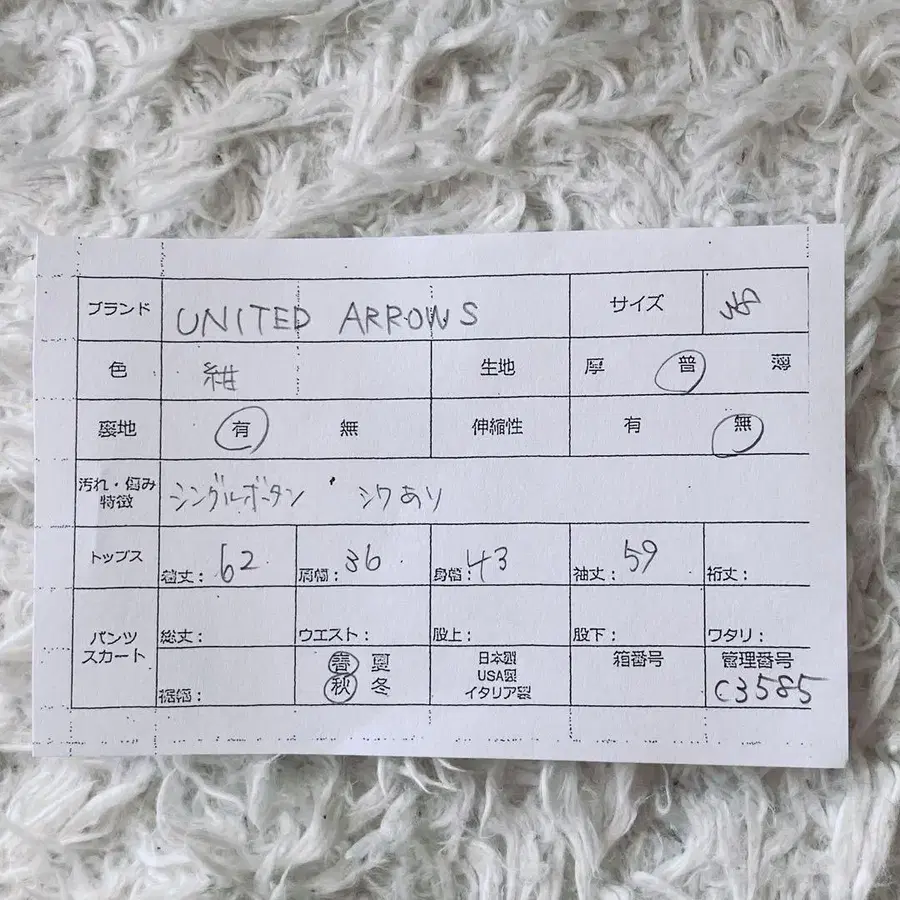 ブランド UNITED ARROWS サイズ
色 紺 生地 厚 普 薄
裏地 有 無 伸縮性 有 無
汚れ・傷み
特徴 シングルボタン シワあり
トップス 着丈: 62 肩幅: 36 身幅: 43 袖丈: 59 裄丈:
パンツ
スカート 総丈: ウエスト: 股上: 股下: ワタリ:
裾幅: 春 夏
秋 冬
日本製
USA製
イタリア製
箱番号
管理番号
C3585